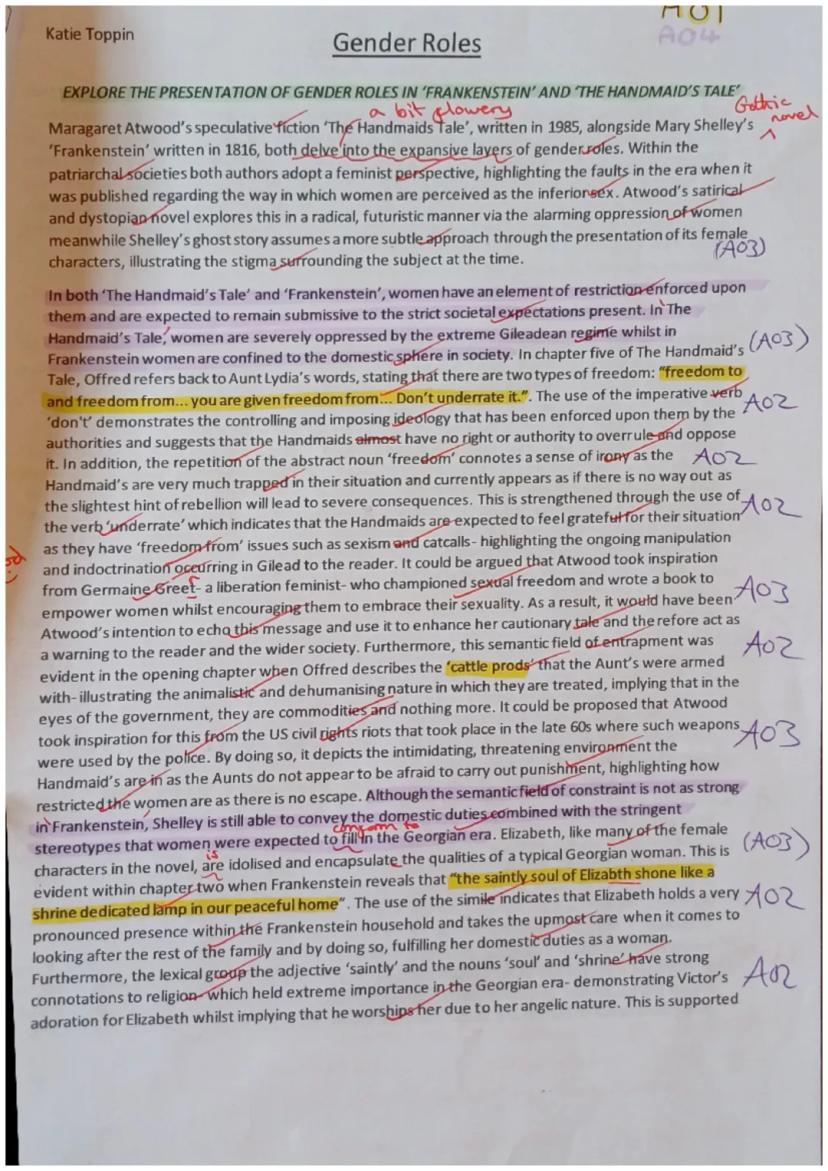 Katie Toppin
A01
A04
Gender Roles
EXPLORE THE PRESENTATION OF GENDER ROLES IN 'FRANKENSTEIN' AND 'THE HANDMAID'S TALE'
a bit flowery
Gothic
novel
Maragaret Atwood's speculative fiction 'The Handmaids Tale', written in 1985, alongside Mary Shelley's
'Frankenstein' written in 1816, both delve into the expansive layers of gender roles. Within the
patriarchal societies both authors adopt a feminist perspective, highlighting the faults in the era when it
was published regarding the way in which women are perceived as the inferior sex. Atwood's satirical
and dystopian novel explores this in a radical, futuristic manner via the alarming oppression of women
meanwhile Shelley's ghost story assumes a more subtle approach through the presentation of its female
characters, illustrating the stigma surrounding the subject at the time.
(A03)
In both 'The Handmaid's Tale' and 'Frankenstein', women have an element of restriction enforced upon
them and are expected to remain submissive to the strict societal expectations present. In 'The
Handmaid's Tale,' women are severely oppressed by the extreme Gileadean regime whilst in
Frankenstein women are confined to the domestic sphere in society. In chapter five of The Handmaid's
(A03)
Tale, Offred refers back to Aunt Lydia's words, stating that there are two types of freedom: "freedom to
and freedom from... you are given freedom from... Don't underrate it.". The use of the imperative verb
A02
'don't' demonstrates the controlling and imposing ideology that has been enforced upon them by the
authorities and suggests that the Handmaids almost have no right or authority to overrule and oppose
it. In addition, the repetition of the abstract noun 'freedom' connotes a sense of irony as the
A02
Handmaid's are very much trapped in their situation and currently appears as if there is no way out as
the slightest hint of rebellion will lead to severe consequences. This is strengthened through the use of
A02
the verb 'underrate' which indicates that the Handmaids are expected to feel grateful for their situation
as they have 'freedom from' issues such as sexism and catcalls- highlighting the ongoing manipulation
and indoctrination occurring in Gilead to the reader. It could be argued that Atwood took inspiration
from Germaine Greet- a liberation feminist- who championed sexual freedom and wrote a book to
r
A03
empower women whilst encouraging them to embrace their sexuality. As a result, it would have been
Atwood's intention to echo this message and use it to enhance her cautionary tale and therefore act as
a warning to the reader and the wider society. Furthermore, this semantic field of entrapment was
A02
evident in the opening chapter when Offred describes the 'cattle prods' that the Aunt's were armed
with- illustrating the animalistic and dehumanising nature in which they are treated, implying that in the
eyes of the government, they are commodities and nothing more. It could be proposed that Atwood
took inspiration for this from the US civil rights riots that took place in the late 60s where such weapons
A03
were used by the police. By doing so, it depicts the intimidating, threatening environment the
Handmaid's are in as the Aunts do not appear to be afraid to carry out punishment, highlighting how
restricted the women are as there is no escape. Although the semantic field of constraint is not as strong
in 'Frankenstein', Shelley is still able to convey the domestic duties combined with the stringent
conform to
stereotypes that women were expected to fill in the Georgian era. Elizabeth, like many of the female
(A03)
is
characters in the novel, are idolised and encapsulate the qualities of a typical Georgian woman. This is
evident within chapter two when Frankenstein reveals that "the saintly soul of Elizabth shone like a
shrine dedicated lamp in our peaceful home". The use of the simile indicates that Elizabeth holds a very
A02
pronounced presence within the Frankenstein household and takes the upmost care when it comes to
looking after the rest of the family and by doing so, fulfilling her domestic duties as a woman.
Furthermore, the lexical group the adjective 'saintly' and the nouns 'soul' and 'shrine' have strong
connotations to religion- which held extreme importance in the Georgian era- demonstrating Victor's
A02
adoration for Elizabeth whilst implying that he worships her due to her angelic nature. This is supported